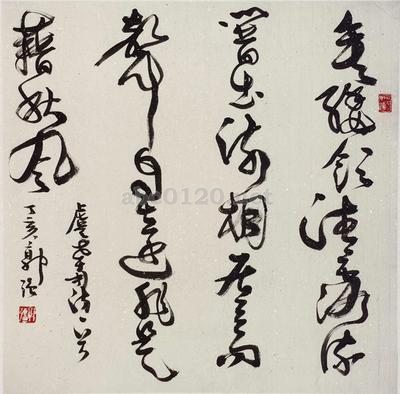 垂緌飲清露流
響出疏桐居高
聲自遠非是
藉秋風
虞世南詩
丁亥郭強